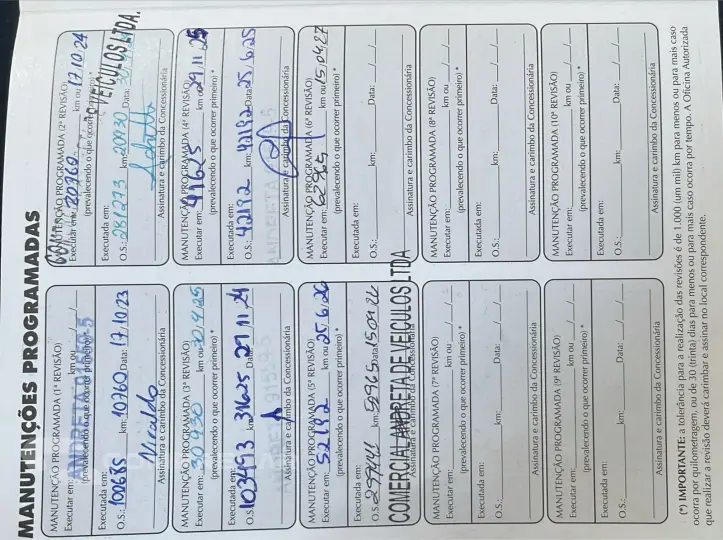 MANUTENÇÕES PROGRAMADAS
MANUTENÇÃO PROGRAMADA (1ª REVISÃO)
Executar em: km ou / /
(prevalecendo o que ocorrer primeiro) *
ANDRETA
Executada em:
O.S.: 100685 km: 10760 Data: 17,10,23
Assinatura e carimbo da Concessionária
MANUTENÇÃO PROGRAMADA (2ª REVISÃO)
Executar em: 20760 km ou 17,10,24
(prevalecendo o que ocorrer primeiro) *
VEICULOS LTDA.
Executada em:
O.S.: 281273 km: 20930 Data:
Assinatura e carimbo da Concessionária
MANUTENÇÃO PROGRAMADA (3ª REVISÃO)
Executar em: 30930 km ou
(prevalecendo o que ocorrer primeiro) *
Executada em:
O.S.: 103493 31625 Data: 11,24
ANDRETA
Assinatura e carimbo da Concessionária
MANUTENÇÃO PROGRAMADA (4ª REVISÃO)
Executar em: 41625 km ou 29,11,25
(prevalecendo o que ocorrer primeiro) *
Executada em:
O.S.: 42192 km: 42192 Data: 25,6,25
ANDRETA
Assinatura e carimbo da Concessionária
MANUTENÇÃO PROGRAMADA (5ª REVISÃO)
Executar em: 52192 km ou 25,6,26
(prevalecendo o que ocorrer primeiro) *
Executada em:
O.S.: km: 52965 Data:
COMERCIAL ANDRETA DE VEICULOS LTDA
Assinatura e carimbo da Concessionária
MANUTENÇÃO PROGRAMADA (6ª REVISÃO)
Executar em: 62965 km ou 15,04,27
(prevalecendo o que ocorrer primeiro) *
Executada em:
O.S.: km: Data: / /
Assinatura e carimbo da Concessionária
MANUTENÇÃO PROGRAMADA (7ª REVISÃO)
Executar em: km ou / /
(prevalecendo o que ocorrer primeiro) *
Executada em:
O.S.: km: Data: / /
Assinatura e carimbo da Concessionária
MANUTENÇÃO PROGRAMADA (8ª REVISÃO)
Executar em: km ou / /
(prevalecendo o que ocorrer primeiro) *
Executada em:
O.S.: km: Data: / /
Assinatura e carimbo da Concessionária
MANUTENÇÃO PROGRAMADA (9ª REVISÃO)
Executar em: km ou / /
(prevalecendo o que ocorrer primeiro) *
Executada em:
O.S.: km: Data: / /
Assinatura e carimbo da Concessionária
MANUTENÇÃO PROGRAMADA (10ª REVISÃO)
Executar em: km ou / /
(prevalecendo o que ocorrer primeiro) *
Executada em:
O.S.: km: Data: / /
Assinatura e carimbo da Concessionária
(*) IMPORTANTE: a tolerância para a realização das revisões é de 1.000 (um mil) km para menos ou para mais caso
ocorra por quilometragem, ou de 30 (trinta) dias para menos ou para mais caso ocorra por tempo. A Oficina Autorizada
que realizar a revisão deverá carimbar e assinar no local correspondente.